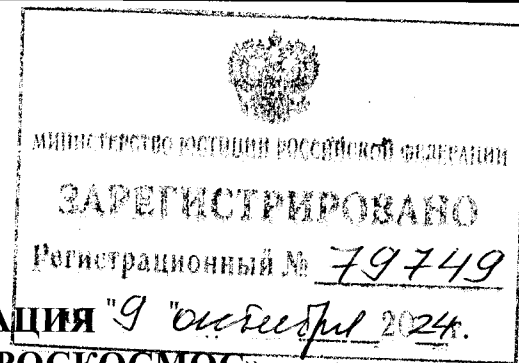 МИНИСТЕРСТВО ЮСТИЦИИ РОССИЙСКОЙ ФЕДЕРАЦИИ
ЗАРЕГИСТРИРОВАНО
Регистрационный № 79749
АЦИЯ "9" октября 2024г.
РОСКОСМОС»